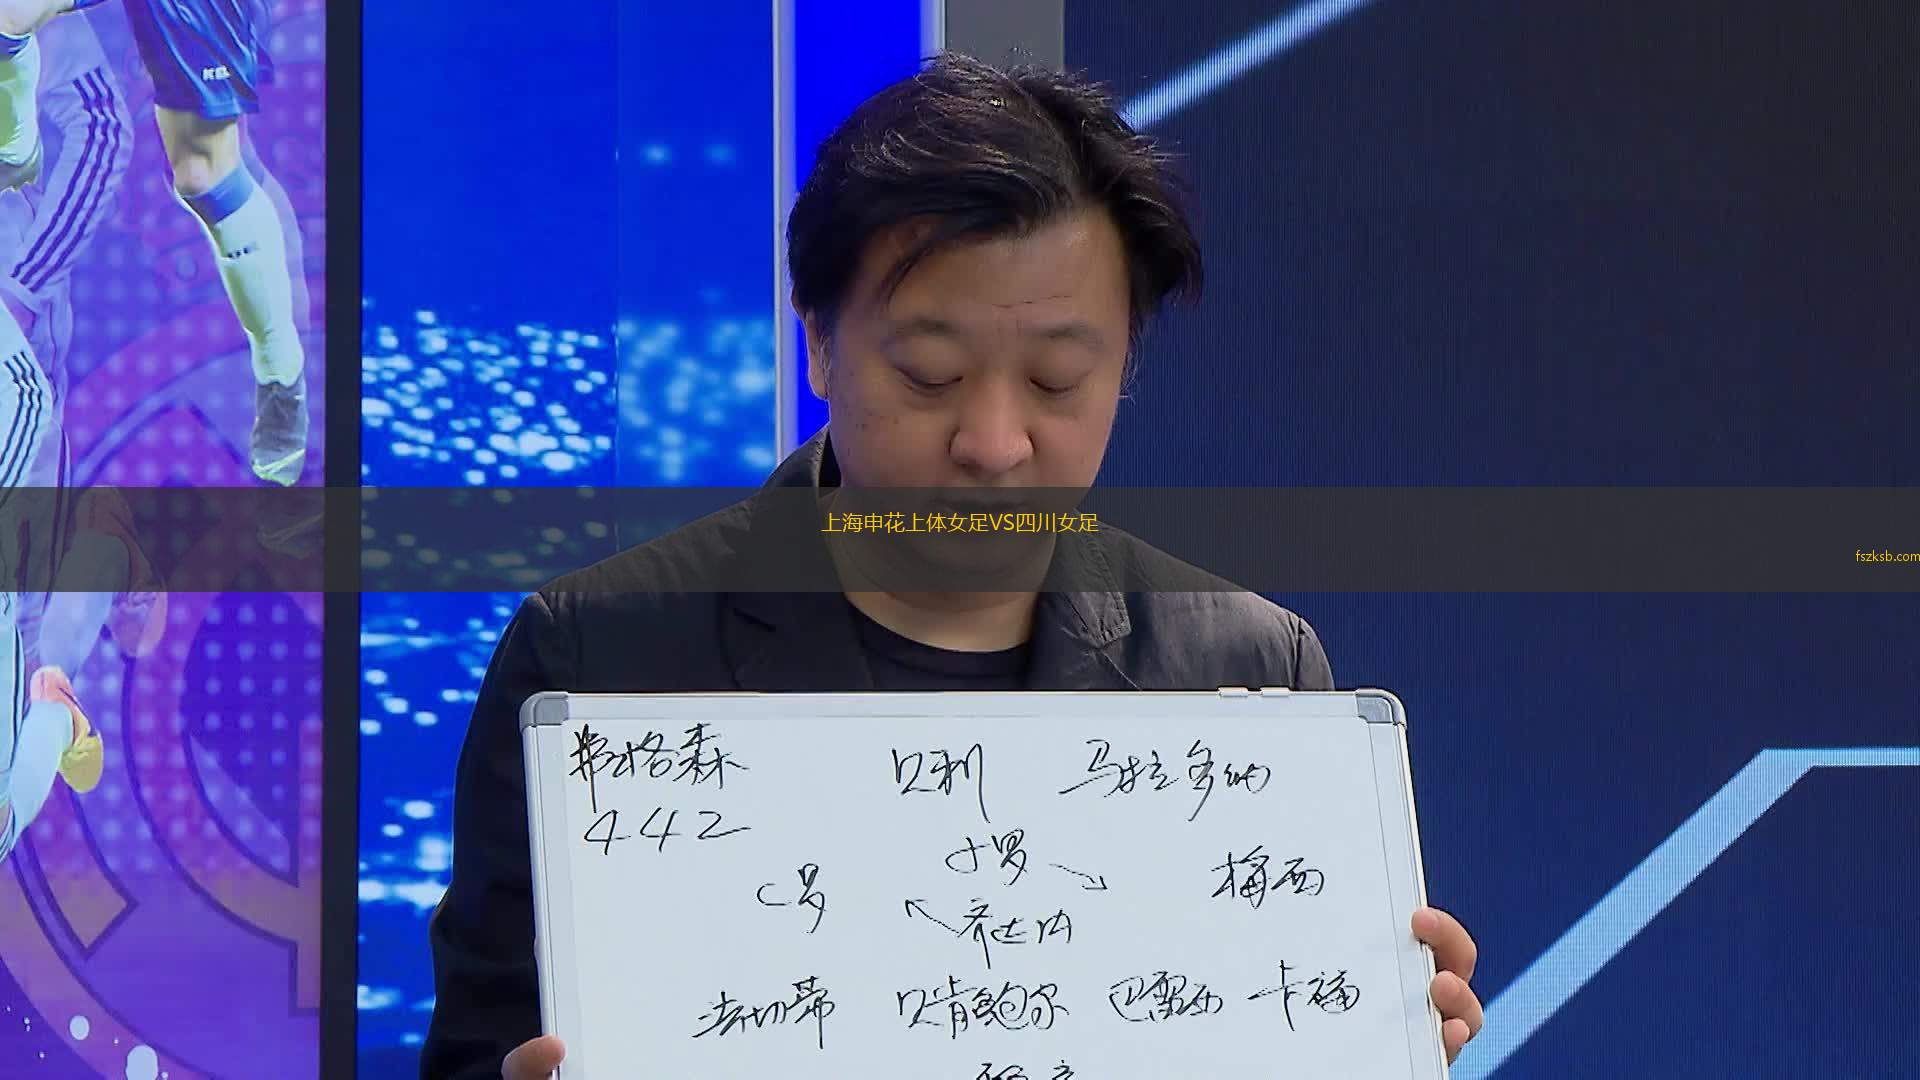 上海申花上体女足VS四川女足
fszksb.com
弗格森 贝利 马拉多纳
442
小罗
C罗 梅西
齐达内
法切蒂 贝肯鲍尔 巴雷西 卡福